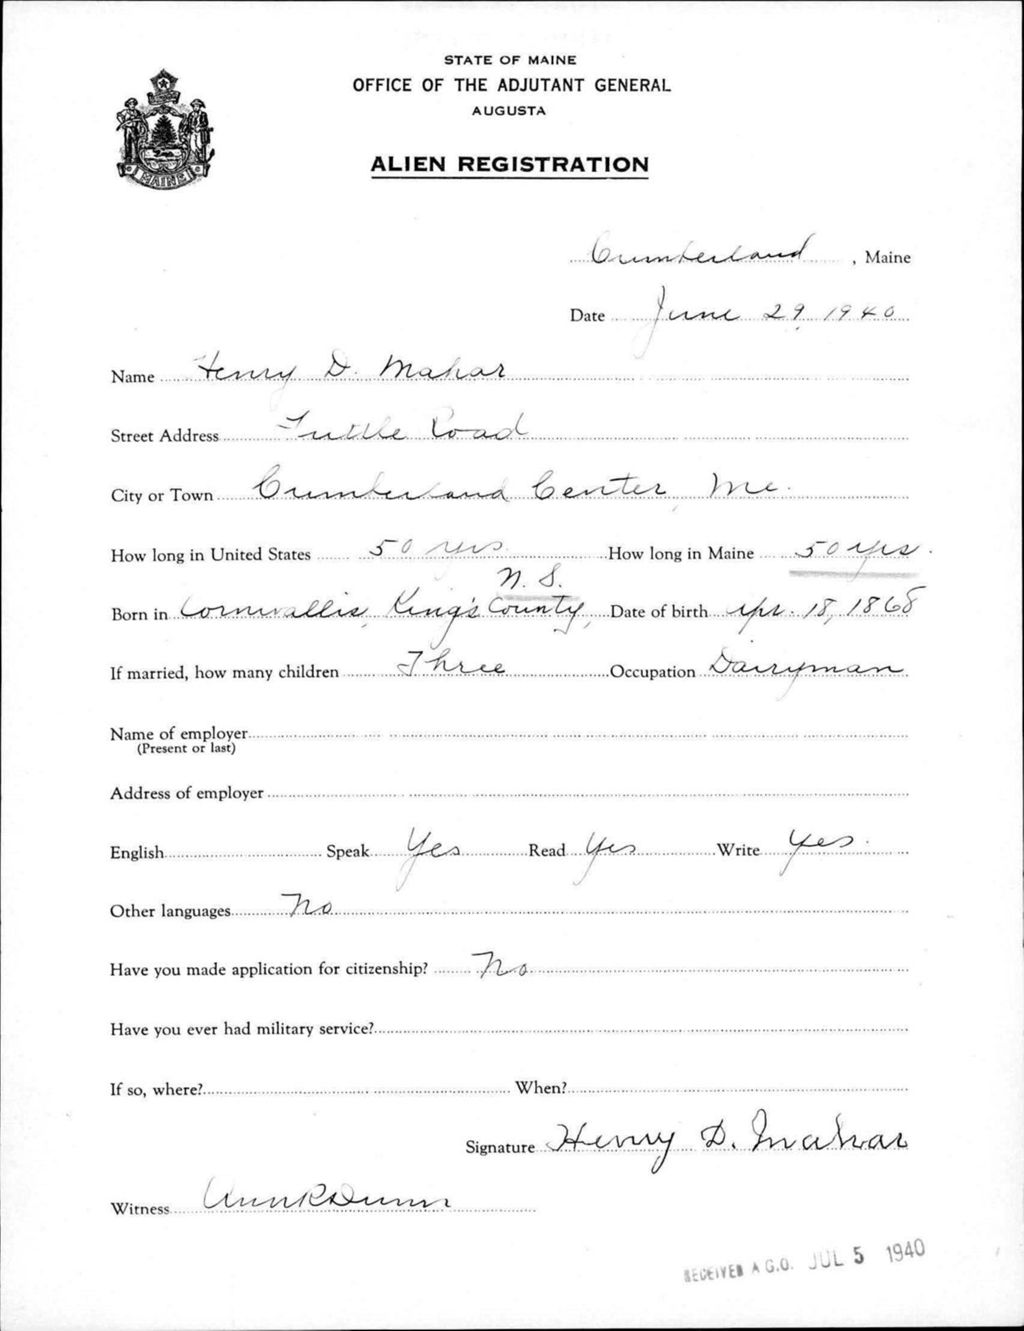 STATE OF MAINE
OFFICE OF THE ADJUTANT GENERAL
AUGUSTA
MAINE
ALIEN REGISTRATION
Cumberland, Maine
Date June 29, 1940
Name Henry D. Mahar
Street Address Tuttle Road
City or Town Cumberland Center, Me.
How long in United States 50 yrs How long in Maine 50 yrs.
N. S.
Born in Cornwallis, King's County, Date of birth Apr. 18, 1868
If married, how many children Three Occupation Dairyman
Name of employer
(Present or last)
Address of employer
English Speak Yes Read Yes Write Yes.
Other languages No
Have you made application for citizenship? No
Have you ever had military service?
If so, where? When?
Signature Henry D. Mahar
Witness Ann R Dunn
RECEIVED A.G.O. JUL 5 1940